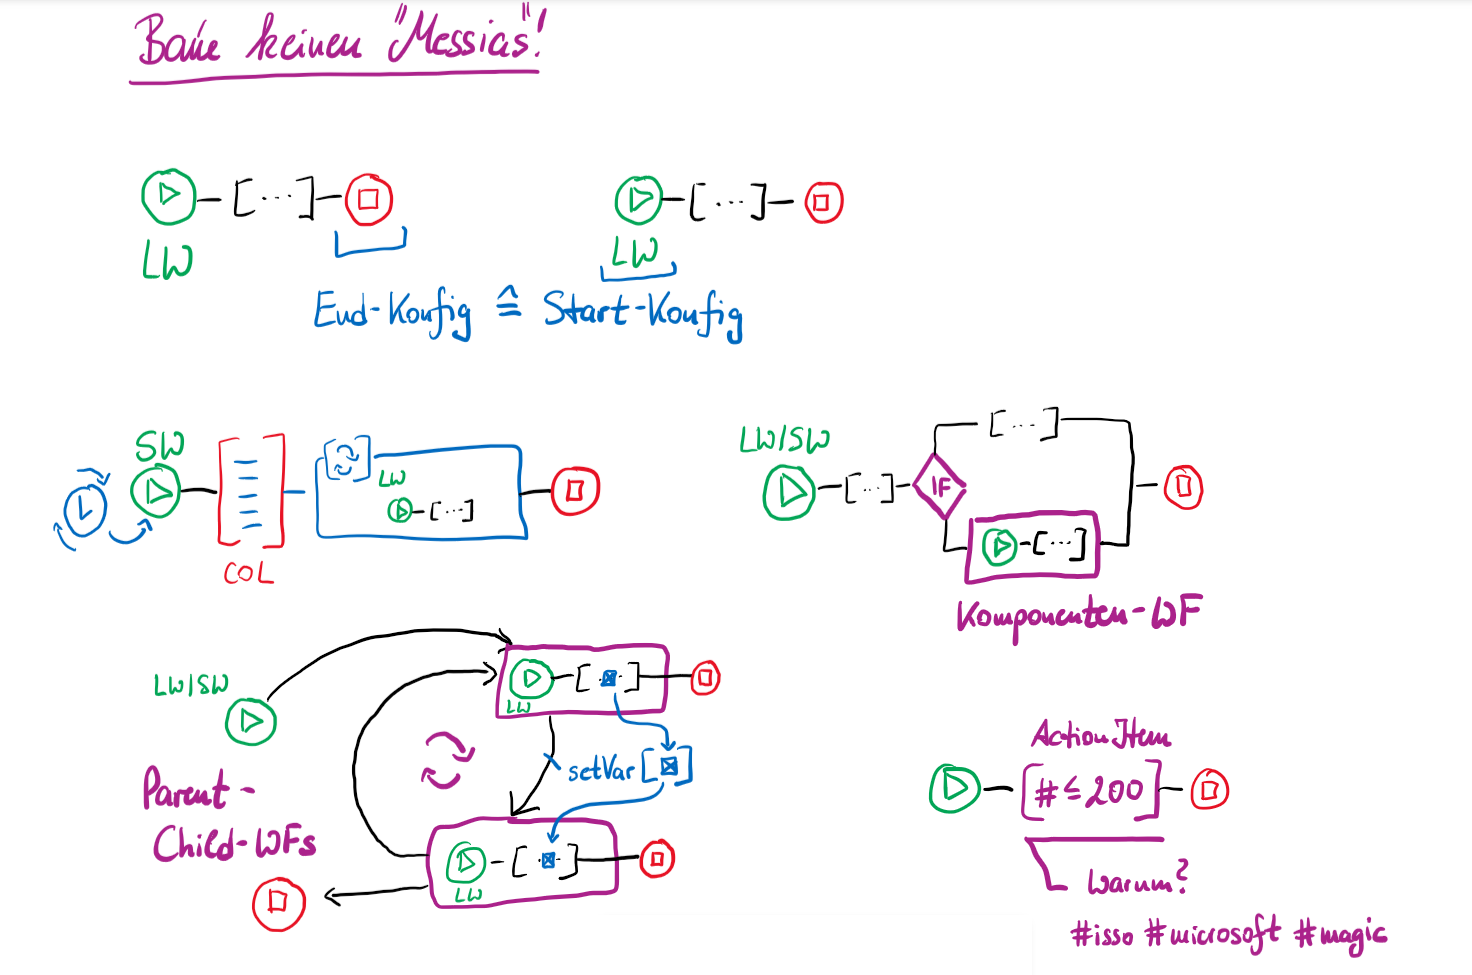 Baue keinen "Messias"!
[...]
[...]
LW
LW
End-Konfig ≙ Start-Konfig
SW
LW
[...]
COL
LW/SW
[...]
IF
[...]
[...]
Komponenten-WF
LW/SW
LW
setVar [☒]
Parent-
Child-WFs
LW
ActionItem
[# ≤ 200]
Warum?
#isso #microsoft #magic